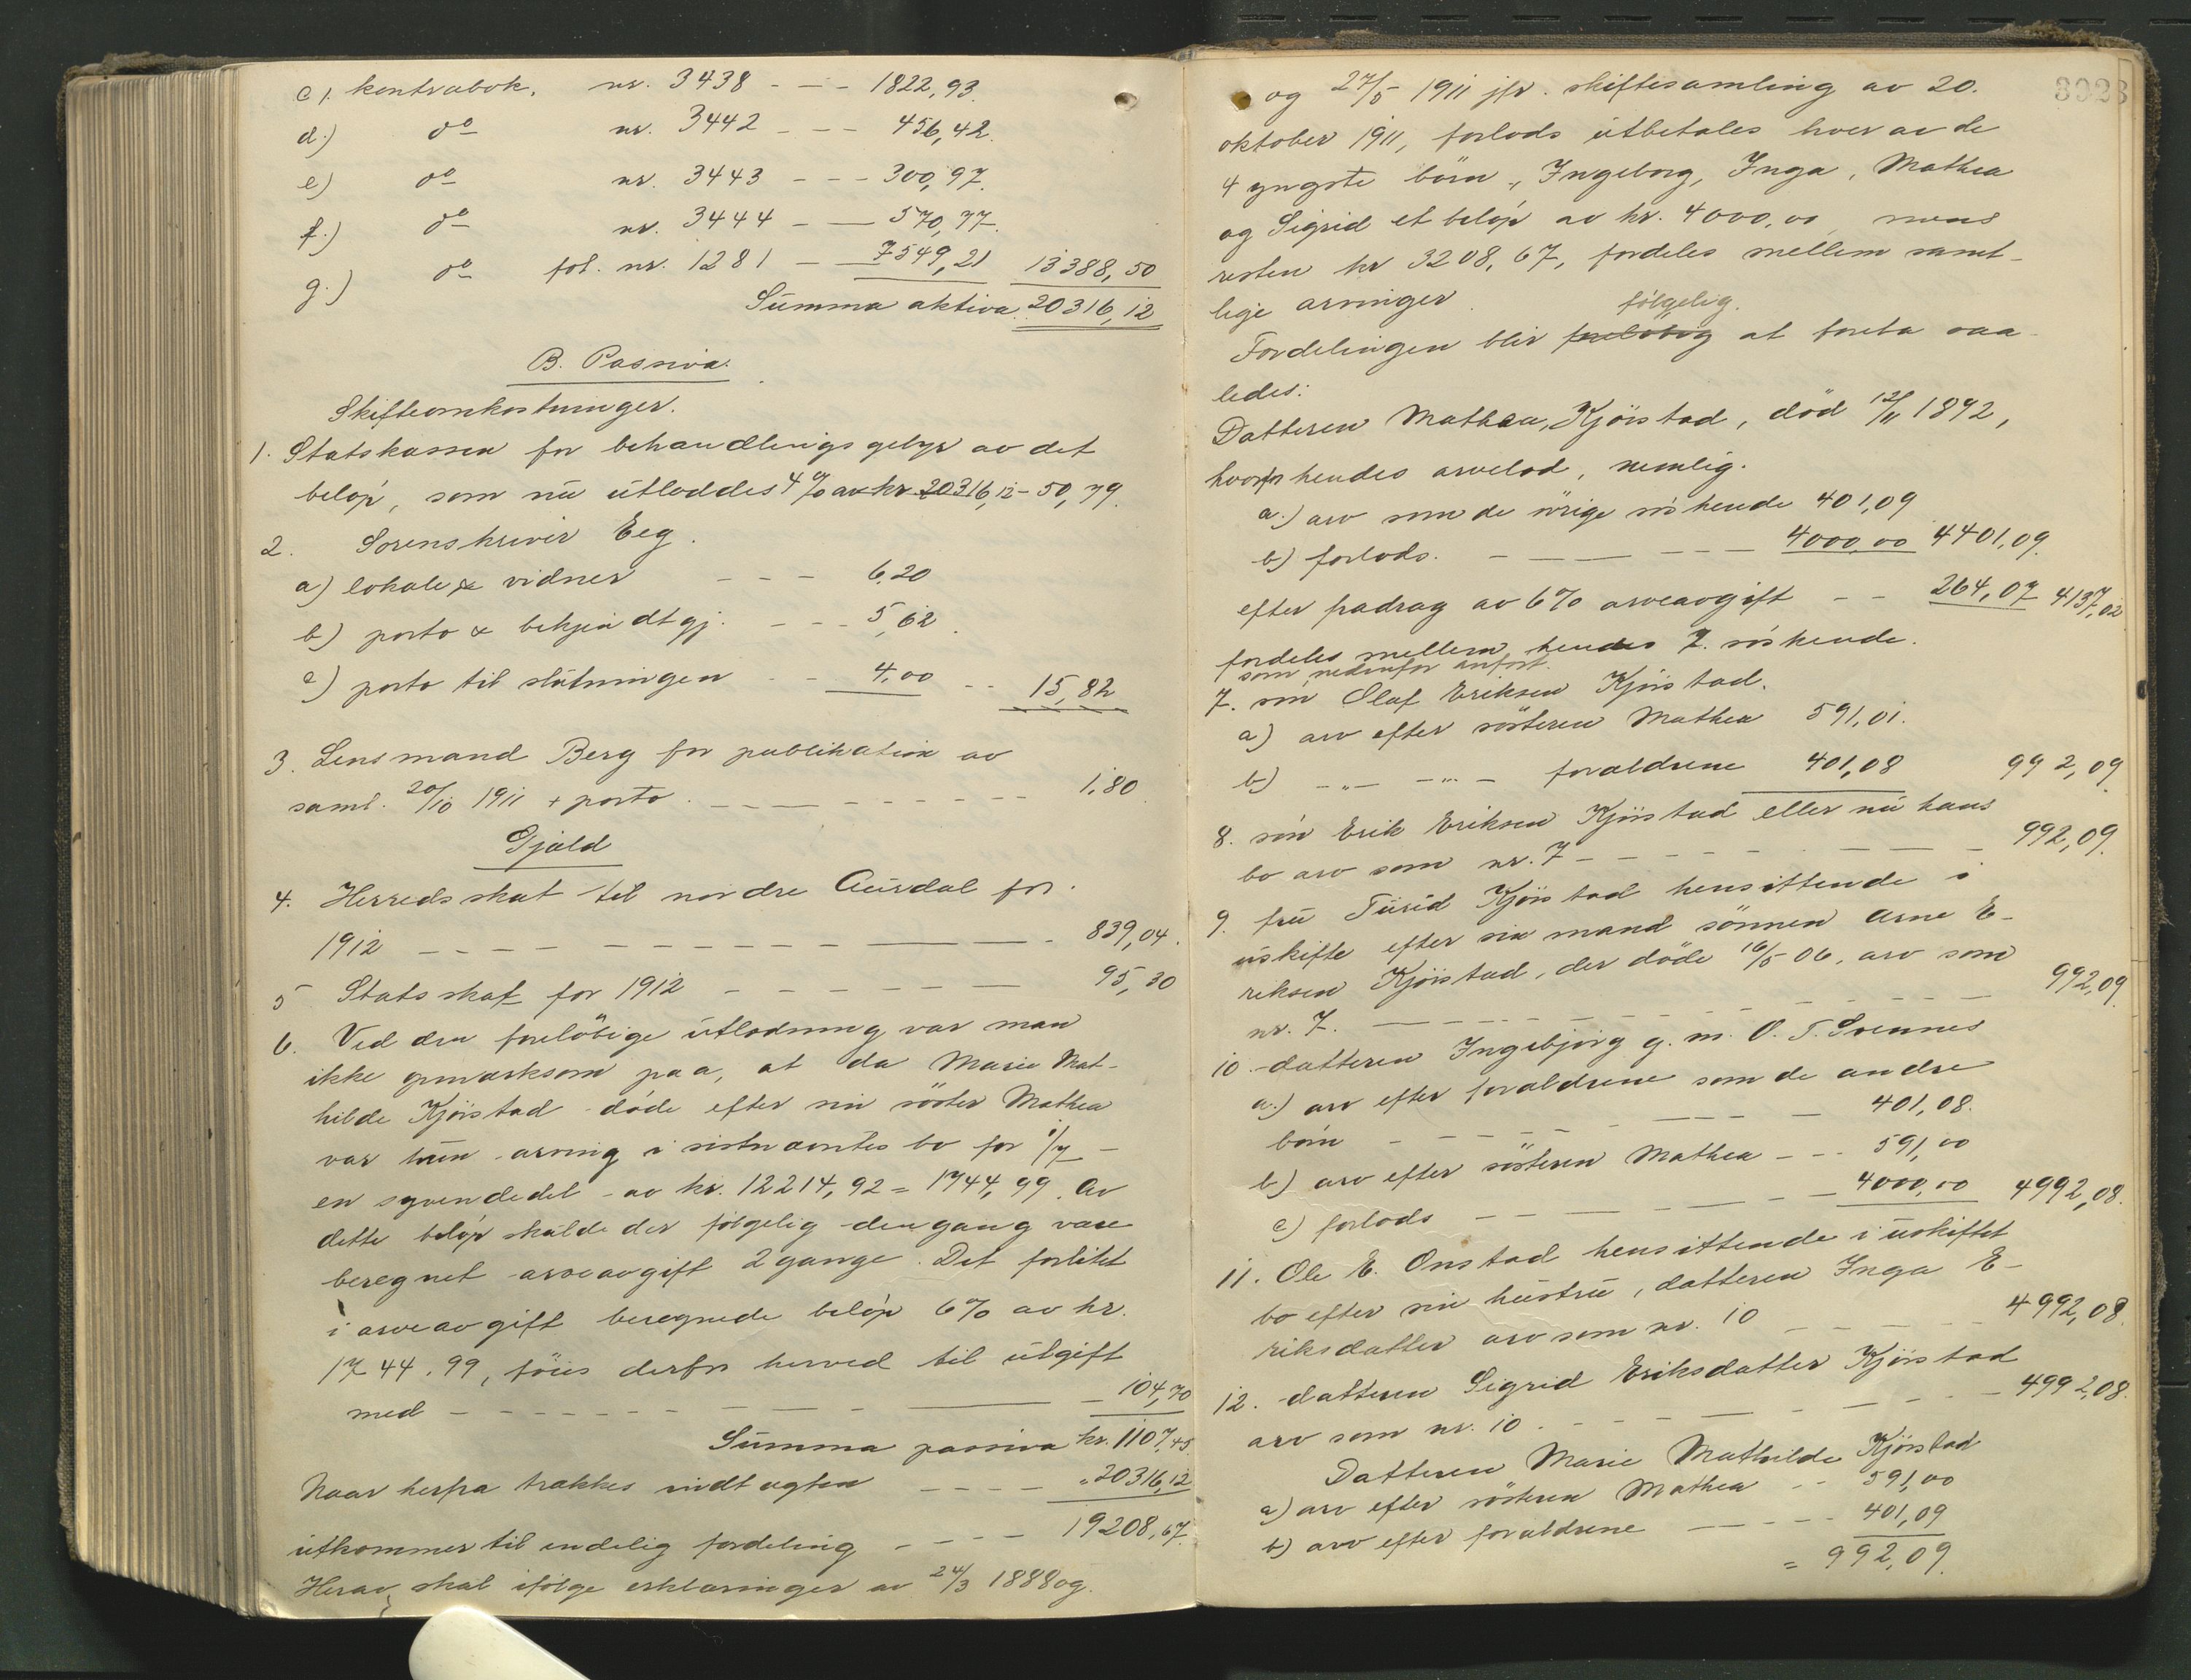 c). kontrabok. nr. 3438 - - - 1822,93.
d.) do nr. 3442 - - - 456,42.
e) do nr. 3443 - - - 300,97.
f.) do nr. 3444 - — 570,77.
g.) do fol. nr. 1281 — 7549,21 13388,50
Summa aktiva 20316,12
B. Passiva.
Skifteomkostninger.
1. Statskassen for behandlingsgebyr av det
beløp, som nu utloddes 4 % av kr 20316,12 - 50,79.
2. Sorenskriver Eeg.
a) lokale & vidner - - - 6,20
b) porto & bekjendtgj. - - - 5,62.
c) porto til slutningen - - 4,00 - - 15,82
3. Lensmand Berg for publikation av
saml. 20/10 1911 + porto. - - - - 1,80
Gjæld
4. Herredsskat til nordre Aurdal for.
1912 - - - - 839,04.
5 Statsskat for 1912 - - - - 95,30
6. Ved den foreløbige utlodning var man
ikke opmerksom paa, at da Marie Mat-
hilde Kjøistad døde efter sin søster Mathea
var hun arving i sistnævntes bo for 1/7 -
en syvendedel - av kr. 12214,92 = 1744,99. Av
dette beløp skulde der følgelig dengang være
beregnet arveavgift 2 gange. Det forlitet
i arveavgift beregnede beløp 6% av kr.
1744.99, føies derfor herved til utgift
med - - - - 104,70
Summa passiva kr. 1107,45
Naar herfra trækkes indtægten - - - - „ 20316,12
utkommer til endelig fordeling - - - 19208,67.
Herav skal ifølge erklæringer av 24/3 1888 og
3923
og 27/5 1911 jfr. skiftesamling av 20.
oktober 1911, forlods utbetales hver av de
4 yngste børn, Ingeborg, Inga, Mathea
og Sigrid et beløp av kr. 4000,00 mens
resten kr 3208,67, fordeles mellem samt-
lige arvinger.
følgelig.
Fordelingen blir foreløbig at foreta saa
ledes:
Datteren Mathea, Kjøistad, død 12/11 1892,
hvorfor hendes arvelod, nemlig.
a.) arv som de øvrige søskende 401,09
b) forlods. - - - - 4000,00 4401,09.
efter fradrag av 6% arveavgift - - 264,07 4137,02
fordeles mellem hendes 7. søskende.
som nedenfor anført.
7. søn Olaf Eriksen Kjøistad.
a) arv efter søsteren Mathea 591,01.
b) -„- -„- forældrene 401,08 992,09.
8. søn Erik Eriksen Kjøistad eller nu hans
bo arv som nr. 7 - - - - 992,09.
9. fru Turid Kjøistad hensittende i
uskifte efter sin mand sønnen Arne E-
riksen Kjøistad, der døde 16/5 06, arv som
nr. 7. - - - - 992,09.
10. datteren Ingebjørg g. m. O. T. Svennes
a.) arv efter forældrene som de andre
børn - - - - 401,08.
b) arv efter søsteren Mathea - - - 591,00
c) forlods - - - - 4000,00 4992,08.
11. Ole E. Onstad hensittende i uskiftet
bo efter sin hustru, datteren Inga E-
riksdatter arv som nr. 10 - - - - 4992,08.
12. datteren Sigrid Eriksdatter Kjøistad
arv som nr. 10. - - - - 4992,08.
Datteren Marie Mathilde Kjøistad
a) arv efter søsteren Mathea - - 591,00
b) arv efter forældrene - - - - 401,09
= 992,09.